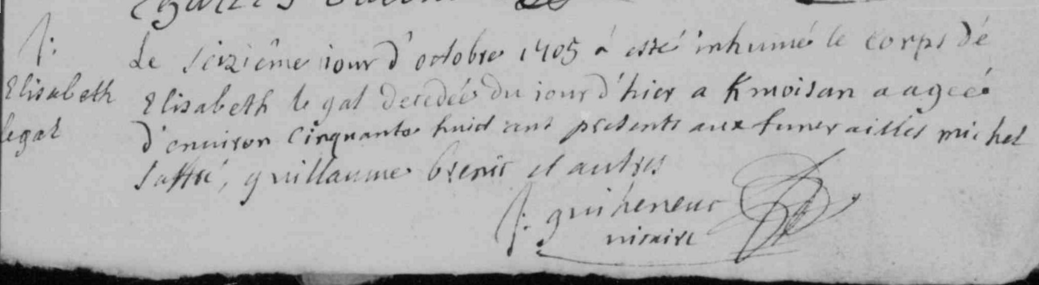 S:
Elisabeth
legal
Le seiziême iour d'octobre 1705 á esté inhumé le corps dé
Elisabeth le gal decedée du iour d'hier a Kmoisan aageé
d'enuiron cinquante huict ans presents aux funerailles michel
guillaume et autres
J: guiheneuc
uicaire